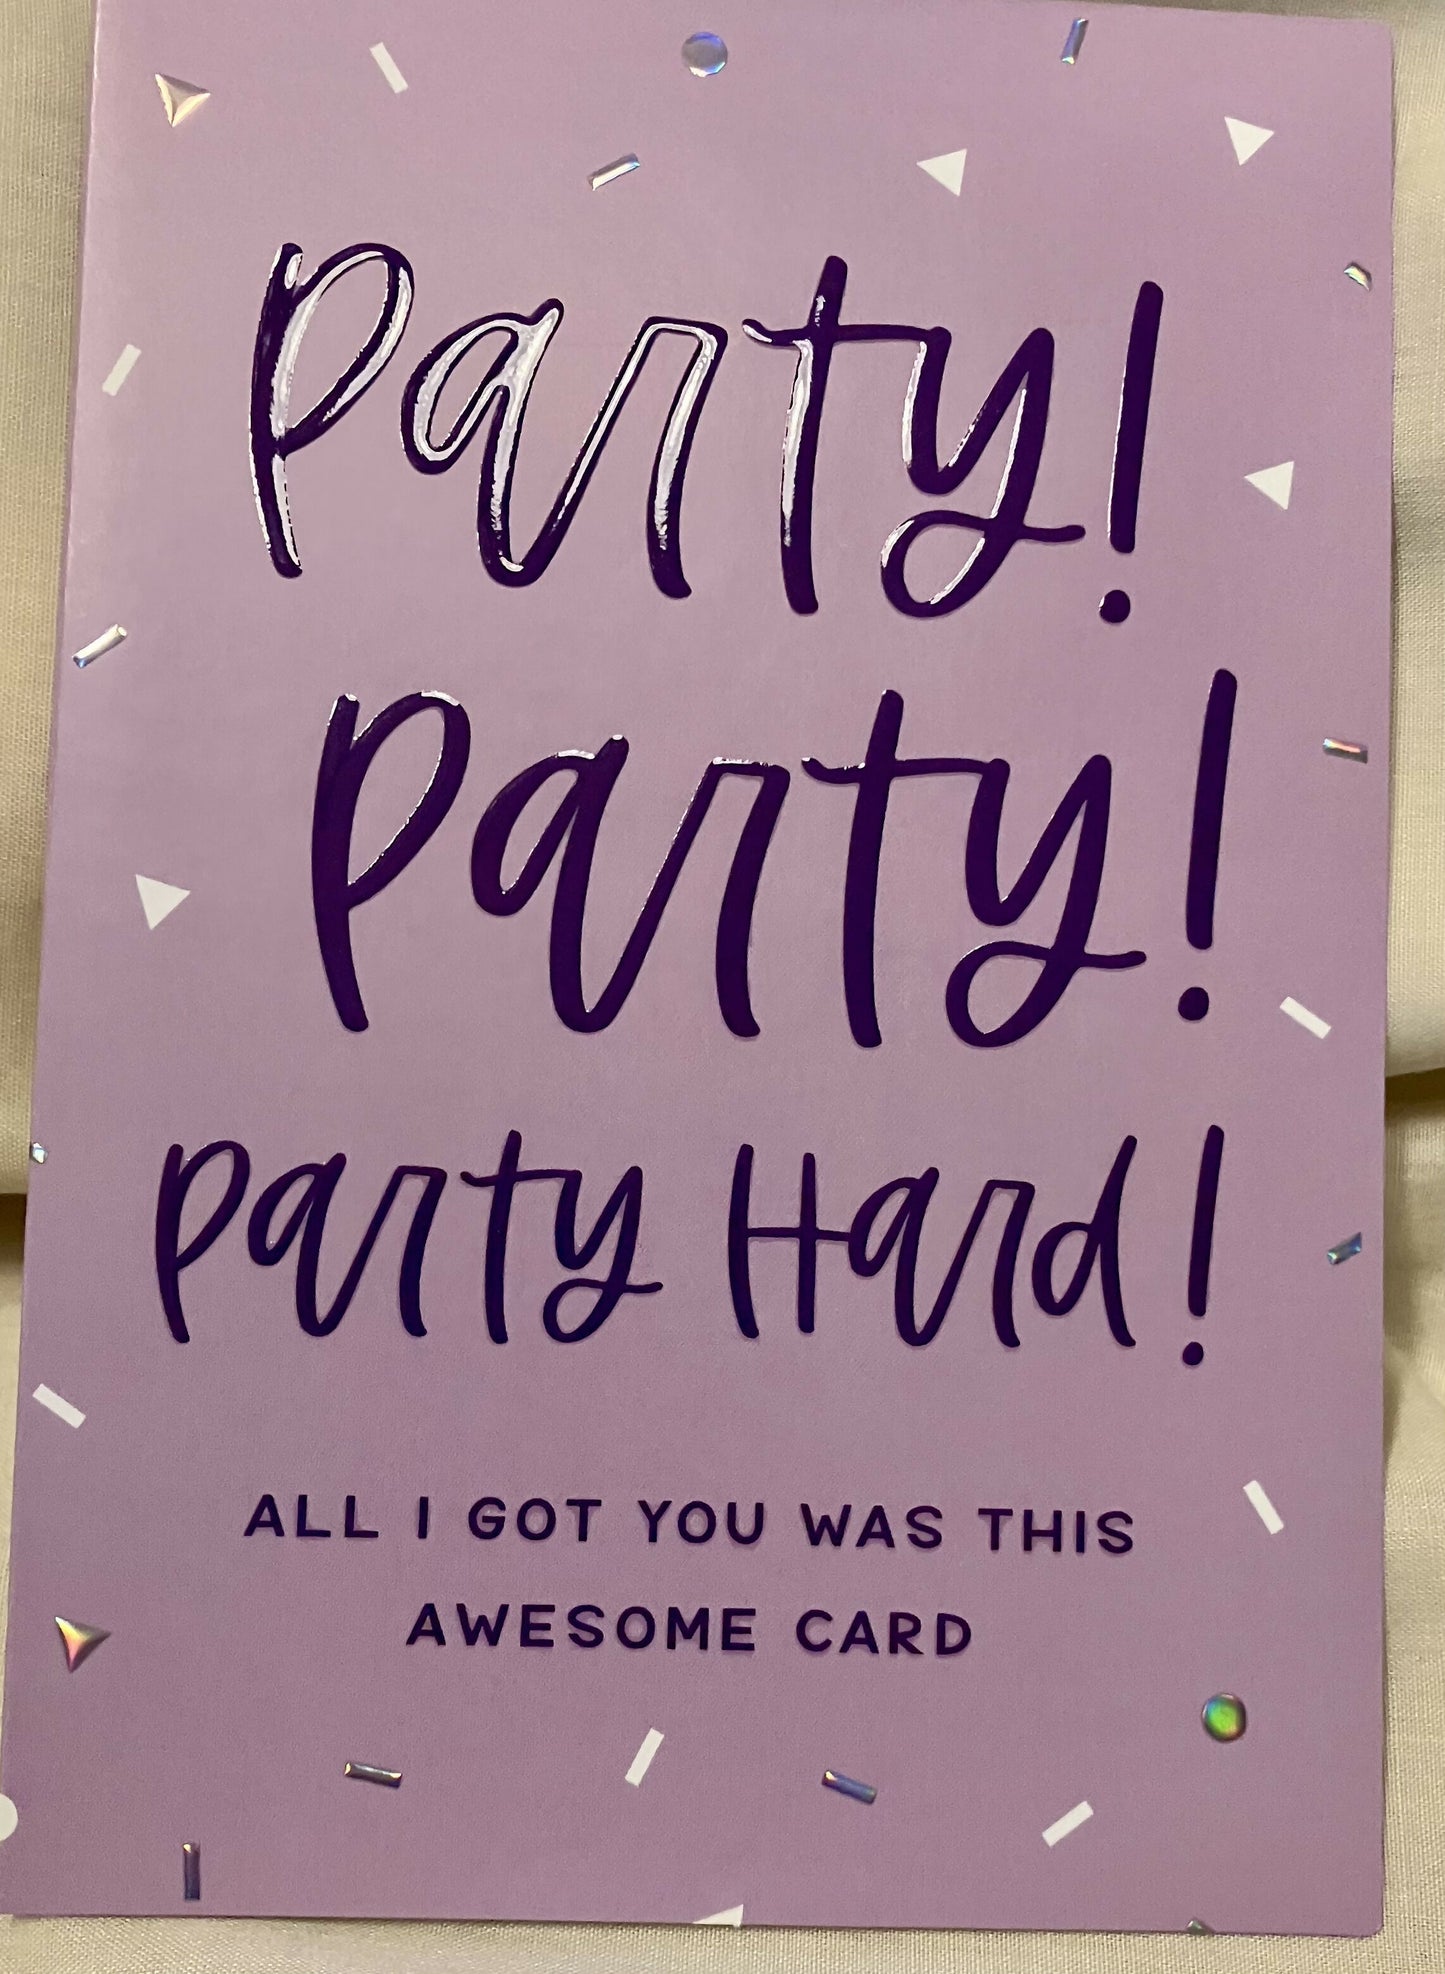 Party!
Party!
Party Hard!
ALL I GOT YOU WAS THIS
AWESOME CARD